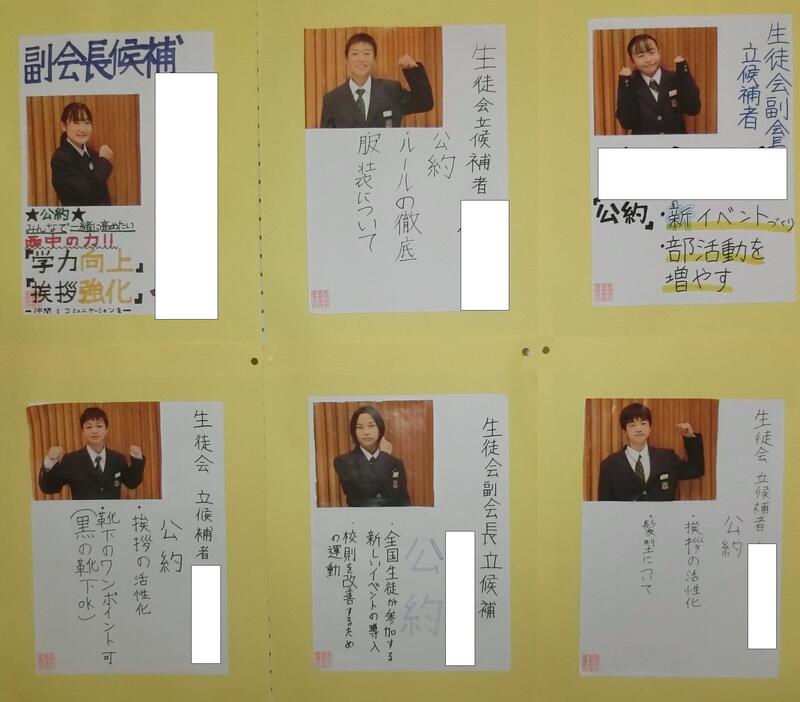 副会長候補
★公約★
みんなで一緒に高めたい
西中の力!!
『学力向上』
『挨拶強化』
ー仲間とコミュニケーションをー
生徒会立候補者
公約
・ルールの徹底
服装について
生徒会副会長
立候補者
『公約』
・新イベントづくり
・部活動を
増やす
生徒会 立候補者
公約
・挨拶の活性化
・靴下のワンポイント可
(黒の靴下ok)
生徒会副会長立候補
公約
・全国生徒が参加する
新しいイベントの導入
・校則を改善するため
の運動
生徒会 立候補者
公約
・挨拶の活性化
・髪型について